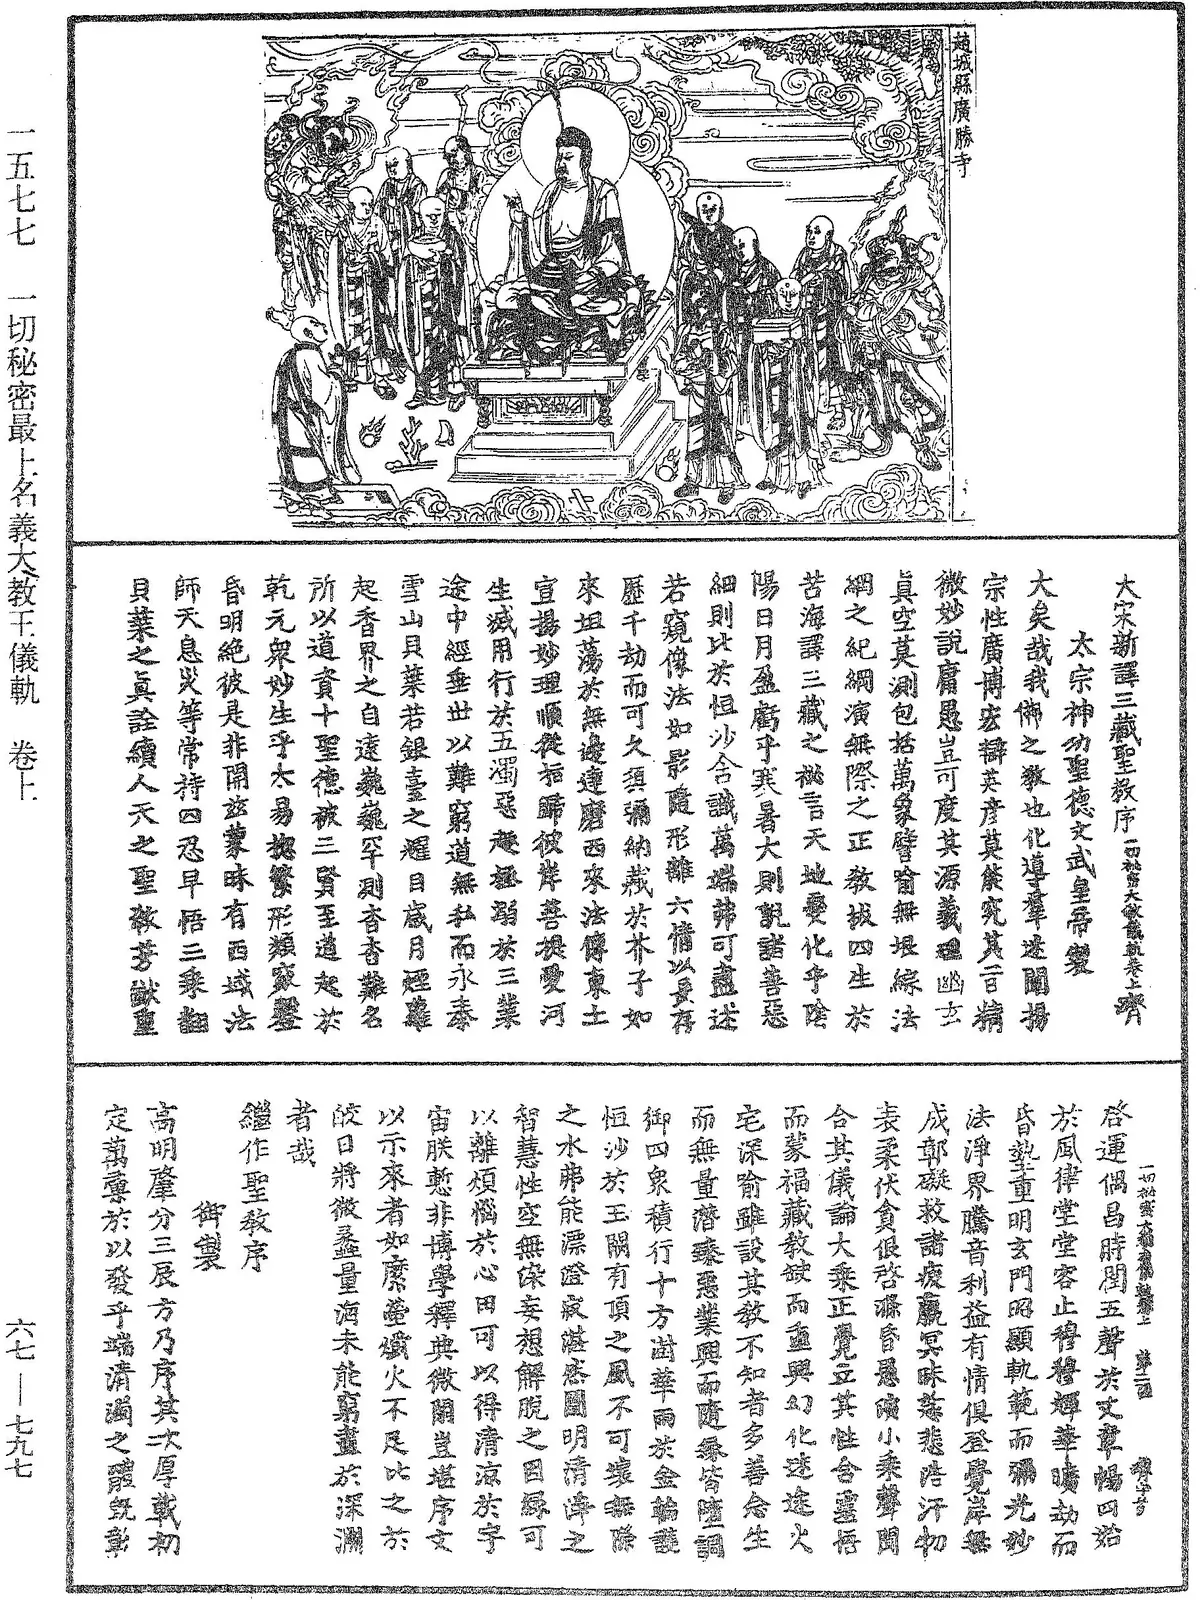 趙城縣廣勝寺
一五七七　一切秘密最上名義大教王儀軌　卷上
六七—七九七
大宋新譯三藏聖教序　一切祕密大教儀軌卷上　齊
太宗神功聖德文武皇帝製
大矣哉我佛之教也化導羣迷闡揚
宗性廣博宏辯英彥莫能究其旨精
微妙說庸愚豈可度其源義理幽玄
真空莫測包括萬象譬喻無垠綜法
網之紀綱演無際之正教拔四生於
苦海譯三藏之祕言天地變化乎陰
陽日月盈虧乎寒暑大則說諸善惡
細則比於恒沙含識萬端弗可盡述
若窺像法如影隨形離六情以長存
歷千劫而可久須彌納藏於芥子如
來坦蕩於無邊達磨西來法傳東土
宣揚妙理順從指歸彼岸菩提愛河
生滅用行於五濁惡趣拯溺於三業
途中經垂世以難窮道無私而永泰
雪山貝葉若銀臺之耀目歲月煙蘿
起香界之自遠巍巍罕測杳杳難名
所以道資十聖德被三賢至道起於
乾元眾妙生乎太易摠繁形類竅鑿
昏明絕彼是非開玆蒙昧有西域法
師天息災等常持四忍早悟三乘翻
貝葉之真詮續人天之聖教芳猷重
啓運偶昌時潤五聲於文章暢四始
於風律堂堂容止穆穆輝華曠劫而
昏墊重明玄門昭顯軌範而彌光妙
法淨界騰音利益有情俱登覺岸無
成鄣礙救諸疲羸冥昧慈悲浩汗物
表柔伏貪佷啓滌昏愚演小乘聲聞
合其儀論大乘正覺立其性含靈悟
而蒙福藏教缺而重興幻化迷途火
宅深喻雖設其教不知者多善念生
而無量潛臻惡業興而隨緣皆墮調
御四眾積行十方澍華雨於金輪護
恒沙於玉闕有頂之風不可壞無際
之水弗能漂澄寂湛然圓明清淨之
智慧性空無染妄想解脫之因緣可
以離煩惱於心田可以得清涼於宇
宙朕慙非博學釋典微閑豈堪序文
以示來者如縻螢爝火不足比之於
皎日將微蠡量海未能窮盡於深淵
者哉
繼作聖教序
御製
高明肇分三辰方乃序其次厚載初
定萬彙於以發乎端清濁之體既彰